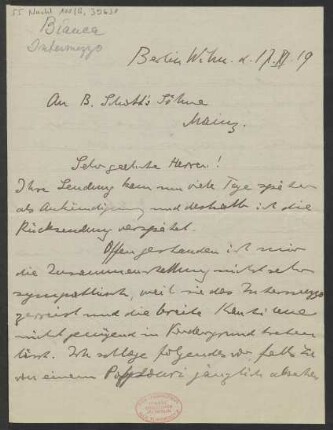 55 Nachl 100/B,
Bianca
Intermezzo
Berlin W. d. 17. XI. 19
An B. Schott's Söhne
Mainz.
Sehr geehrte Herren!
Ihre Sendung kam nun viele Tage später
als Ankündigung und deshalb ist die
Rücksendung verspätet.
Offengestanden ist mir
die Zusammenstellung nicht sehr
sympathisch, weil sie das Intermezzo
zerreisst und die breite Kantilene
nicht genügend in Vordergrund treten
lässt. Ich schlage folgendes vor, falls Sie
von einem Potpourri gänzlich absehen